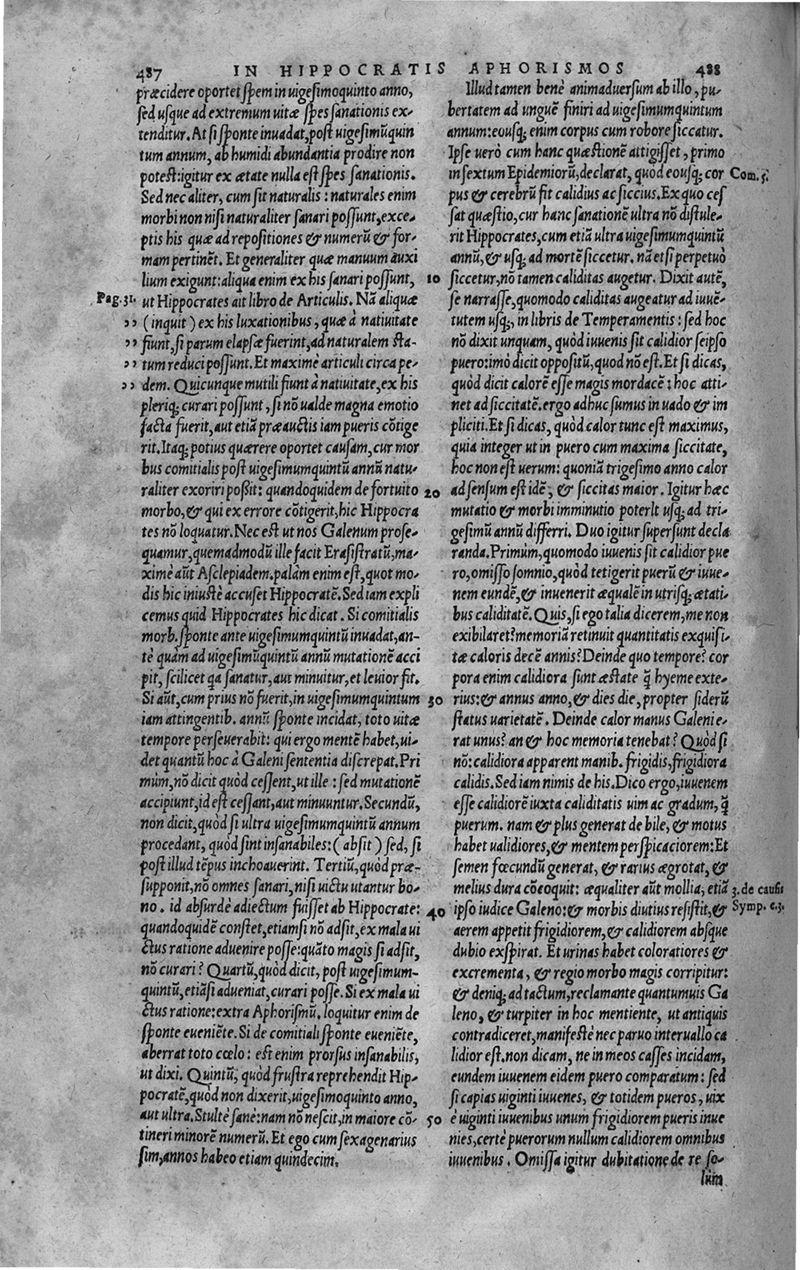 487 IN HIPPOCRATIS APHORISMOS 488
præcidere oportet spem in uigesimoquinto anno,
sed usque ad extremum uitæ spes sanationis ex-
tenditur. At si sponte inuadat, post uigesimũquin
tum annum, ab humidi abundantia prodire non
potest: igitur ex ætate nulla est spes sanationis.
Sed nec aliter, cum sit naturalis: naturales enim
morbi non nisi naturaliter sanari possunt, exce-
ptis his quæ ad repositiones & numerũ & for-
mam pertinẽt. Et generaliter quæ manuum auxi
lium exigunt: aliqua enim ex his sanari possunt, 10
Pag. 31. ut Hippocrates ait libro de Articulis. Nã aliquæ
,, (inquit) ex his luxationibus, quæ à natiuitate
,, fiunt, si parum elapsæ fuerint, ad naturalem sta-
,, tum reduci possunt. Et maximè articuli circa pe-
,, dem. Quicunque mutili fiunt à natiuitate, ex his
pleriq; curari possunt, si nõ ualde magna emotio
facta fuerit, aut etiã præauctis iam pueris cõtige
rit. Itaq; potius quærere oportet causam, cur mor
bus comitialis post uigesimumquintũ annũ natu-
raliter exoriri poßit: quandoquidem de fortuito 20
morbo, & qui ex errore cõtigerit, hic Hippocra
tes nõ loquatur. Nec est ut nos Galenum prose-
quamur, quemadmodũ ille facit Erasistratũ, ma-
ximè aũt Asclepiadem. palàm enim est, quot mo-
dis hic iniustè accuset Hippocratẽ. Sed iam expli
cemus quid Hippocrates hic dicat. Si comitialis
morb. sponte ante uigesimumquintũ inuadat, an-
tè quàm ad uigesimũquintũ annũ mutationẽ acci
pit, scilicet qa sanatur, aut minuitur, et leuior fit.
Si aũt, cum prius nõ fuerit, in uigesimumquintum 30
iam attingentib. annũ sponte incidat, toto uitæ
tempore perseuerabit: qui ergo mentẽ habet, ui-
det quantũ hoc à Galeni sententia discrepat. Pri
mùm, nõ dicit quòd cessent, ut ille: sed mutationẽ
accipiunt, id est cessant, aut minuuntur. Secundũ,
non dicit, quòd si ultra uigesimumquintũ annum
procedant, quòd sint insanabiles: (absit) sed, si
post illud tẽpus inchoauerint. Tertiũ, quòd præ-
supponit, nõ omnes sanari, nisi uictu utantur bo-
no. id absurdè adiectum fuisset ab Hippocrate: 40
quandoquidẽ constet, etiamsi nõ adsit, ex mala ui
ctus ratione aduenire posse: quãto magis si adsit,
nõ curari? Quartũ, quòd dicit, post uigesimum-
quintũ, etiãsi adueniat, curari posse. Si ex mala ui
ctus ratione: extra Aphorismũ. loquitur enim de
sponte eueniẽte. Si de comitiali sponte eueniẽte,
aberrat toto cœlo: est enim prorsus insanabilis,
ut dixi. Quintũ, quòd frustra reprehendit Hip-
pocratẽ, quòd non dixerit, uigesimoquinto anno,
aut ultra. Stultè sanè: nam nõ nescit, in maiore cõ- 50
tineri minorẽ numerũ. Et ego cum sexagenarius
sim, annos habeo etiam quindecim.
Illud tamen benè animaduersum ab illo, pu-
bertatem ad unguẽ finiri ad uigesimumquintum
annum: eousq; enim corpus cum robore siccatur.
Ipse uerò cum hanc quæstionẽ attigisset, primo
in sextum Epidemiorũ, declarat, quòd eousq; cor Com. 5.
pus & cerebrũ fit calidius ac siccius. Ex quo ces
sat quæstio, cur hanc sanationẽ ultra nõ distule-
rit Hippocrates, cum etiã ultra uigesimumquintũ
annũ, & usq; ad mortẽ siccetur. nã etsi perpetuò
siccetur, nõ tamen caliditas augetur. Dixit autẽ,
se narrasse, quomodo caliditas augeatur ad iuuẽ-
tutem usq;, in libris de Temperamentis: sed hoc
nõ dixit unquam, quòd iuuenis sit calidior seipso
puero: imò dicit oppositũ, quod nõ est. Et si dicas,
quòd dicit calorẽ esse magis mordacẽ: hoc atti-
net ad siccitatẽ. ergo adhuc sumus in uado & im
pliciti. Et si dicas, quòd calor tunc est maximus,
quia integer ut in puero cum maxima siccitate,
hoc non est uerum: quoniã trigesimo anno calor
ad sensum est idẽ, & siccitas maior. Igitur hæc
mutatio & morbi imminutio poterit usq; ad tri-
gesimũ annũ differri. Duo igitur supersunt decla
randa. Primùm, quomodo iuuenis sit calidior pue
ro, omisso somnio, quòd tetigerit puerũ & iuue-
nem eundẽ, & inuenerit æqualẽ in utrisq; ætati-
bus caliditatẽ. Quis, si ego talia dicerem, me non
exibilaret? memoriã retinuit quantitatis exquisi-
tæ caloris decẽ annis? Deinde quo tempore? cor
pora enim calidiora sunt æstate q̃ hyeme exte-
rius: & annus anno, & dies die, propter siderũ
status uarietatẽ. Deinde calor manus Galeni e-
rat unus? an & hoc memoria tenebat? Quòd si
nõ: calidiora apparent manib. frigidis, frigidiora
calidis. Sed iam nimis de his. Dico ergo, iuuenem
esse calidiorẽ iuxta caliditatis uim ac gradum, q̃
puerum. nam & plus generat de bile, & motus
habet ualidiores, & mentem perspicaciorem: Et
semen fœcundũ generat, & rarius ægrotat, &
melius dura cõcoquit: æqualiter aũt mollia, etiã 3. de causis
ipso iudice Galeno: & morbis diutius resistit, & Symp. c. 3.
aerem appetit frigidiorem, & calidiorem absque
dubio exspirat. Et urinas habet coloratiores &
excrementa, & regio morbo magis corripitur:
& deniq; ad tactum, reclamante quantumuis Ga
leno, & turpiter in hoc mentiente, ut antiquis
contradiceret, manifestè nec paruo interuallo ca
lidior est. non dicam, ne in meos casses incidam,
eundem iuuenem eidem puero comparatum: sed
si capias uiginti iuuenes, & totidem pueros, uix
è uiginti iuuenibus unum frigidiorem pueris inue
nies, certè puerorum nullum calidiorem omnibus
iuuenibus. Omissa igitur dubitatione de re so-
lùm